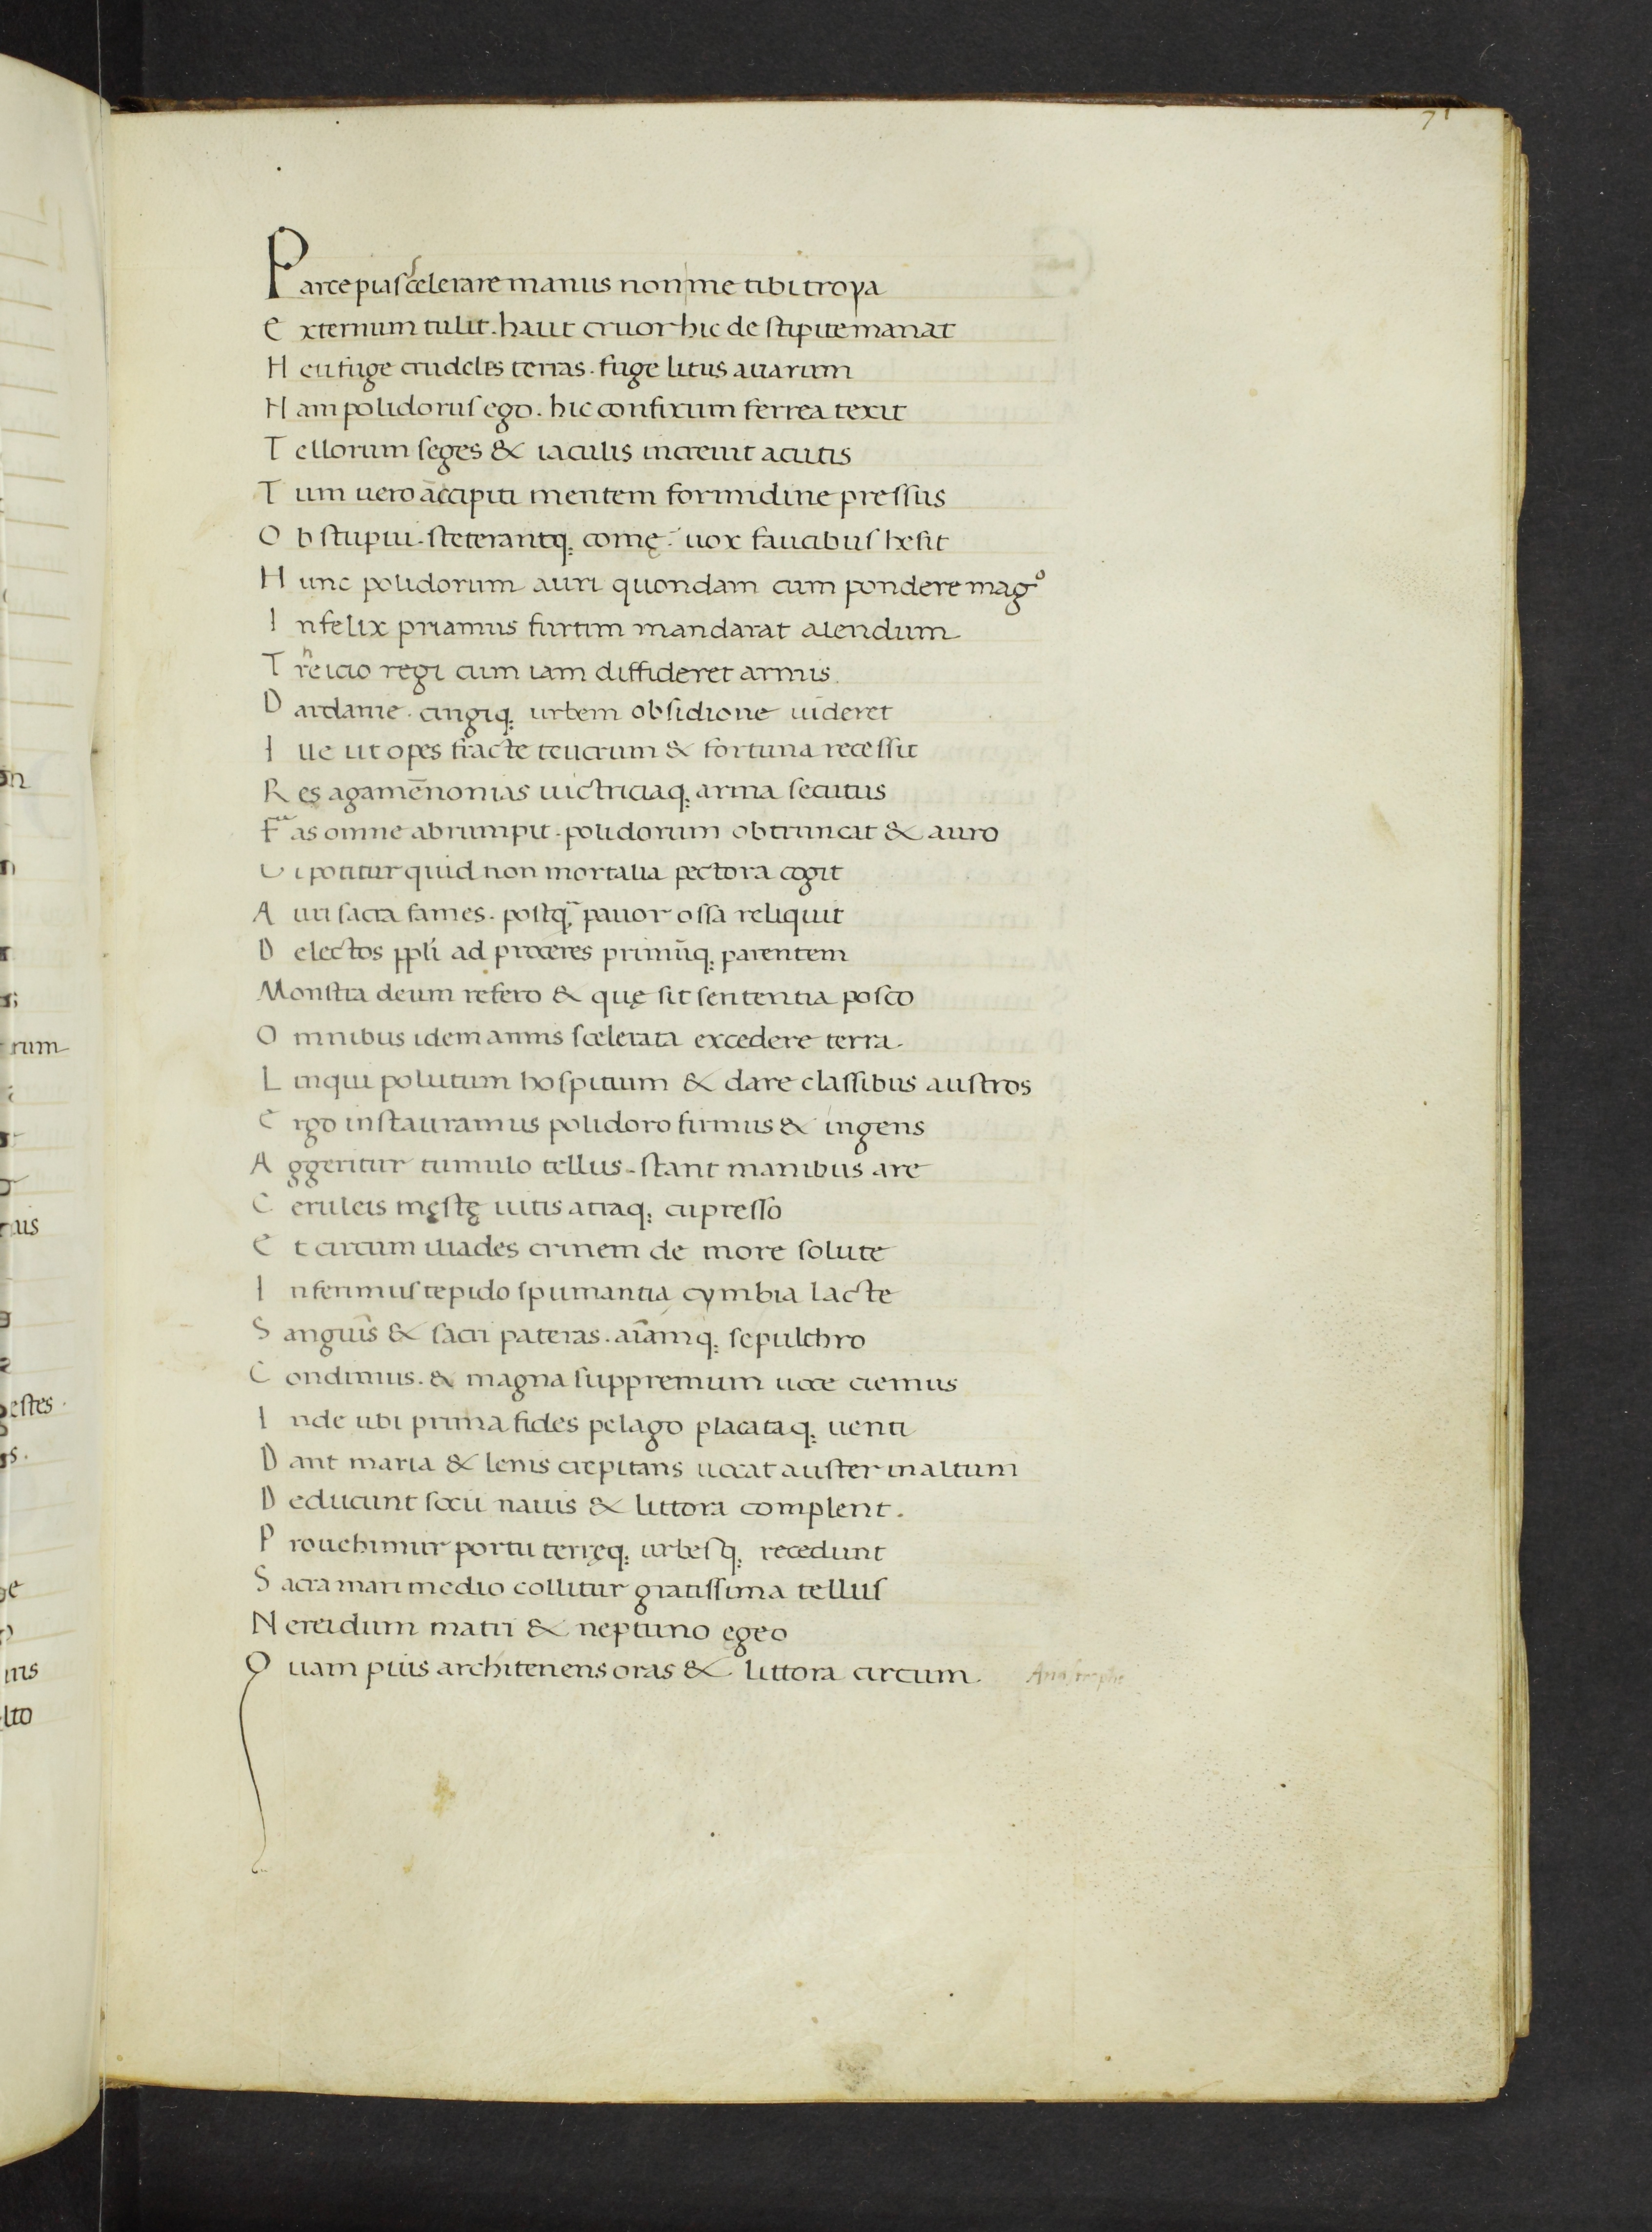 71
Parce pias scelerare manus non me tibi troya
Externum tulit. haut cruor hic de stipite manat
Heu fuge crudeles terras. fuge litus auarum
Nam polidorus ego. hic confixum ferrea texit
Tellorum seges & iaculis increuit acutis
Tum uero ancipiti mentem formidine pressus
Obstupui. steterantq; comę. uox faucibus hesit
Hunc polidorum auri quondam cum pondere magº
Infelix priamus furtim mandarat alendum
Trheicio regi cum iam diffideret armis.
Dardanie. cingiq; urbem obsidione uideret
Iue ut opes fracte teucrum & fortuna recessit
Res agamēnonias uictriciaq; arma secutus
Fas omne abrumpit. polidorum obtruncat & auro
Ui potitur quid non mortalia pectora cogit
Auri sacra fames. postq̄ pauor ossa reliquit
Delectos ppl̄i ad proceres primūq; parentem
Monstra deum refero & quę sit sententia posco
Omnibus idem animis scelerata excedere terra.
Linqui polutum hospitium & dare classibus austros
Ergo instauramus polidoro firmus & ingens
Aggeritur tumulo tellus. stant manibus are
Ceruleis męstę uitis atraq; cupresso
Et circum iliades crinem de more solute
Inferimus tepido spumantia cymbia lacte
Sanguis & sacri pateras. aīamq; sepulchro
Condimus. & magna suppremum uoce ciemus
Inde ubi prima fides pelago placataq; uenti
Dant maria & lenis crepitans uocat auster in altum
Deducunt socii nauis & littora complent.
Prouehimur portu terręq; urbesq; recedunt
Sacra mari medio collitur gratissima tellus
Nereidum matri & neptuno egeo
Quam pius architenens oras & littora circum. Anastrophe